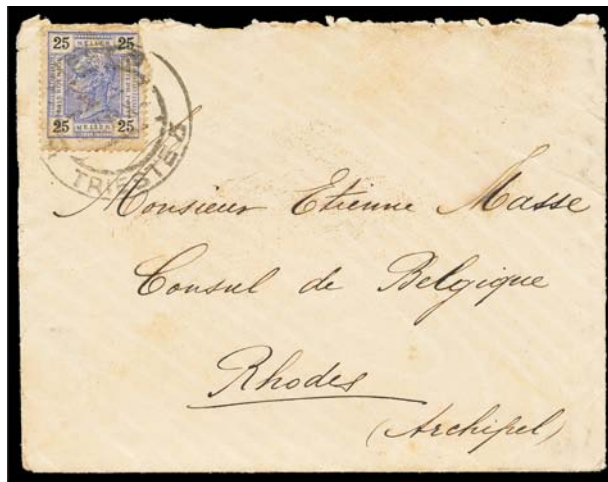 25 HELLER 25
25 HELLER 25
TRIESTE
Monsieur Etienne Masse
Consul de Belgique
Rhodes
(Archipel)